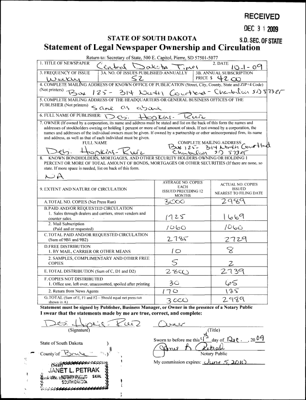 RECEIVED
DEC 31 2009
S.D. SEC. OF STATE
STATE OF SOUTH DAKOTA
Statement of Legal Newspaper Ownership and Circulation
Return to: Secretary of State, 500 E. Capitol, Pierre, SD 57501-5077
1. TITLE OF NEWSPAPER
Central Dakota Times
2. DATE
10-1-09
3. FREQUENCY OF ISSUE
Weekly
3A. NO. OF ISSUES PUBLISHED ANNUALLY
52
3B. ANNUAL SUBSCRIPTION
PRICE $ 42.00
4. COMPLETE MAILING ADDRESS OF KNOWN OFFICE OF PUBLICATION (Street, City, County, State and ZIP+4 Code)
(Not printers)
Box 125 - 314 North
5. COMPLETE MAILING ADDRESS OF THE HEADQUARTERS OR GENERAL BUSINESS OFFICES OF THE
PUBLISHER (Not printers)
Same as above
6. FULL NAME OF PUBLISHER
7. OWNER (If owned by a corporation, its name and address must be stated and list on the back of this form the names and
addresses of stockholders owning or holding 1 percent or more of total amount of stock. If not owned by a corporation, the
names and addresses of the individual owners must be given. If owned by a partnership or other unincorporated firm, its name
and address, as well as that of each individual must be given.
FULL NAME
COMPLETE MAILING ADDRESS
8. KNOWN BONDHOLDERS, MORTGAGES, AND OTHER SECURITY HOLDERS OWNING OR HOLDING 1
PERCENT OR MORE OF TOTAL AMOUNT OF BONDS, MORTGAGES OR OTHER SECURITIES (If there are none, so
state. If more space is needed, list on back of this form.
N/A
9. EXTENT AND NATURE OF CIRCULATION
AVERAGE NO. COPIES
EACH
ISSUED PRECEDING 12
MONTHS
ACTUAL NO. COPIES
ISSUED
NEAREST TO FILING DATE
A. TOTAL NO. COPIES (Net Press Run)
3000
2989
B. PAID AND/OR REQUESTED CIRCULATION
1. Sales through dealers and carriers, street vendors and
counter sales.
1725
1669
2. Mail Subscription
(Paid and/or requested)
1060
1060
C. TOTAL PAID AND/OR REQUESTED CIRCULATION
(Sum of 9B1 and 9B2)
2785
2729
D. FREE DISTRIBUTION
1. BY MAIL, CARRIER OR OTHER MEANS
10
8
2. SAMPLES, COMPLIMENTARY AND OTHER FREE
COPIES
5
2
E. TOTAL DISTRIBUTION (Sum of C, D1 and D2)
2800
2739
F. COPIES NOT DISTRIBUTED
1. Office use, left over, unaccounted, spoiled after printing
30
2. Return from News Agents
170
G. TOTAL (Sum of E, F1 and F2 - Should equal net press run
shown in A)
3000
2989
Statement must be signed by Publisher, Business Manager, or Owner in the presence of a Notary Public
I swear that the statements made by me are true, correct, and complete:
Owner
(Signature)
(Title)
State of South Dakota )
Sworn to before me this 1st day of Oct, 2009
County of
Notary Public
JANET L. PETRAK
NOTARY PUBLIC
SEAL
SOUTH DAKOTA
My commission expires: